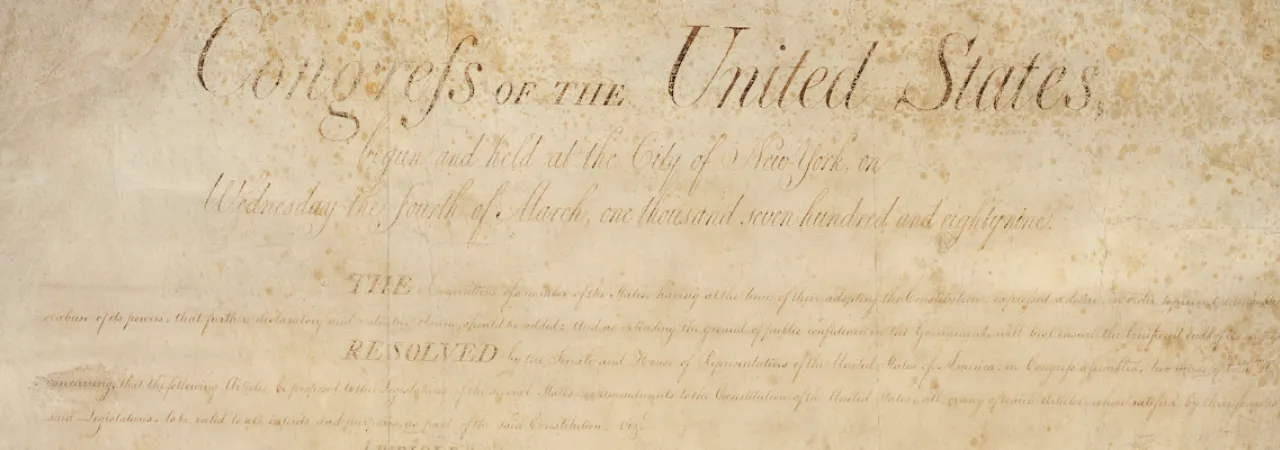 Congreſs OF THE United States,
begun and held at the City of New-York, on
Wednesday the fourth of March, one thousand seven hundred and eighty nine.
THE Conventions of a number of the States, having at the time of their adopting the Constitution, expressed a desire, in order to prevent
or abuse of its powers, that further declaratory and restrictive clauses should be added: And as extending the ground of public confidence in the Government, will best ensure the beneficent ends of its
RESOLVED by the Senate and House of Representatives of the United States of America, in Congress aſsembled, two thirds of
concurring, that the following Articles be proposed to the Legislatures of the several States, as amendments to the Constitution of the United States, all, or any of which Articles, when ratified by
said Legislatures, to be valid to all intents and purposes, as part of the said Constitution, viz.